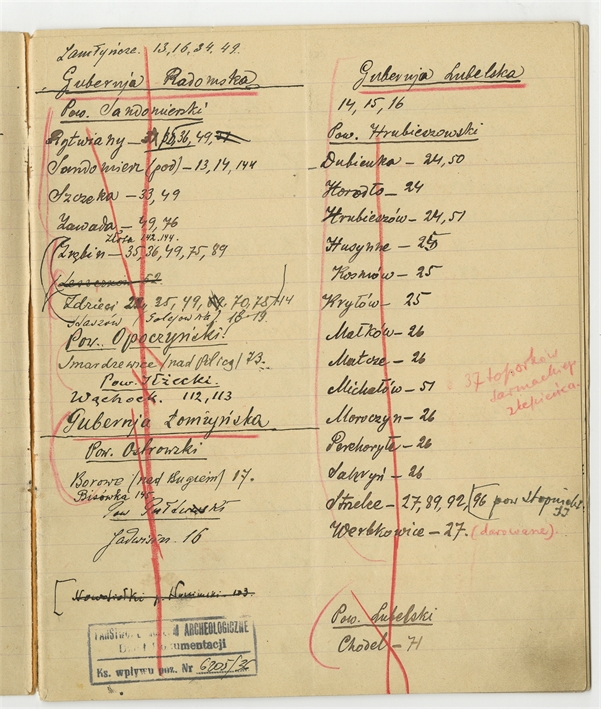 Zamłyńcze. 13, 16, 34, 49.
Gubernja Radomska
Pow. Sandomierski
Rytwiany — 36, 49,
Sandomierz (pod) — 13, 14, 144
Szczeka — 33, 49
Zawada — 49, 76
Złota 142. 144.
Zrębin — 35, 36, 49, 75, 89
62
Zdzieci 25, 49, 70, 75, 114
Staszów (Golejów) 18-19
Pow. Opoczyński.
Smardzewice (nad Pilicą) 73.
Pow. Iłżecki.
Wąchock. 112, 113
Gubernja Łomżyńska
Pow. Ostrowski
Borowe (nad Bugiem) 17.
Bisówka 145.
Pow Pułtuski
Jadwisin. 16
Nowosiółki p. 103
PAŃSTWOWE ARCHEOLOGICZNE
Dokumentacji
Ks. wpływu poz. Nr 6205/36
Gubernja Lubelska
14, 15, 16
Pow. Hrubieszowski
Dubienka — 24, 50
Horodło — 24
Hrubieszów — 24, 51
Husynne — 25
Kosmów — 25
Kryłów — 25
Małków — 26
Matcze — 26
Michałów — 51
37 toporków
sarmackiej
Moroczyn — 26
Perehoryłe — 26
Sahryń — 26
Strzelce — 27, 89, 92, [96 pow Stopnicki
Werbkowice — 27. (darowane).
Pow. Lubelski
Chodel — 71